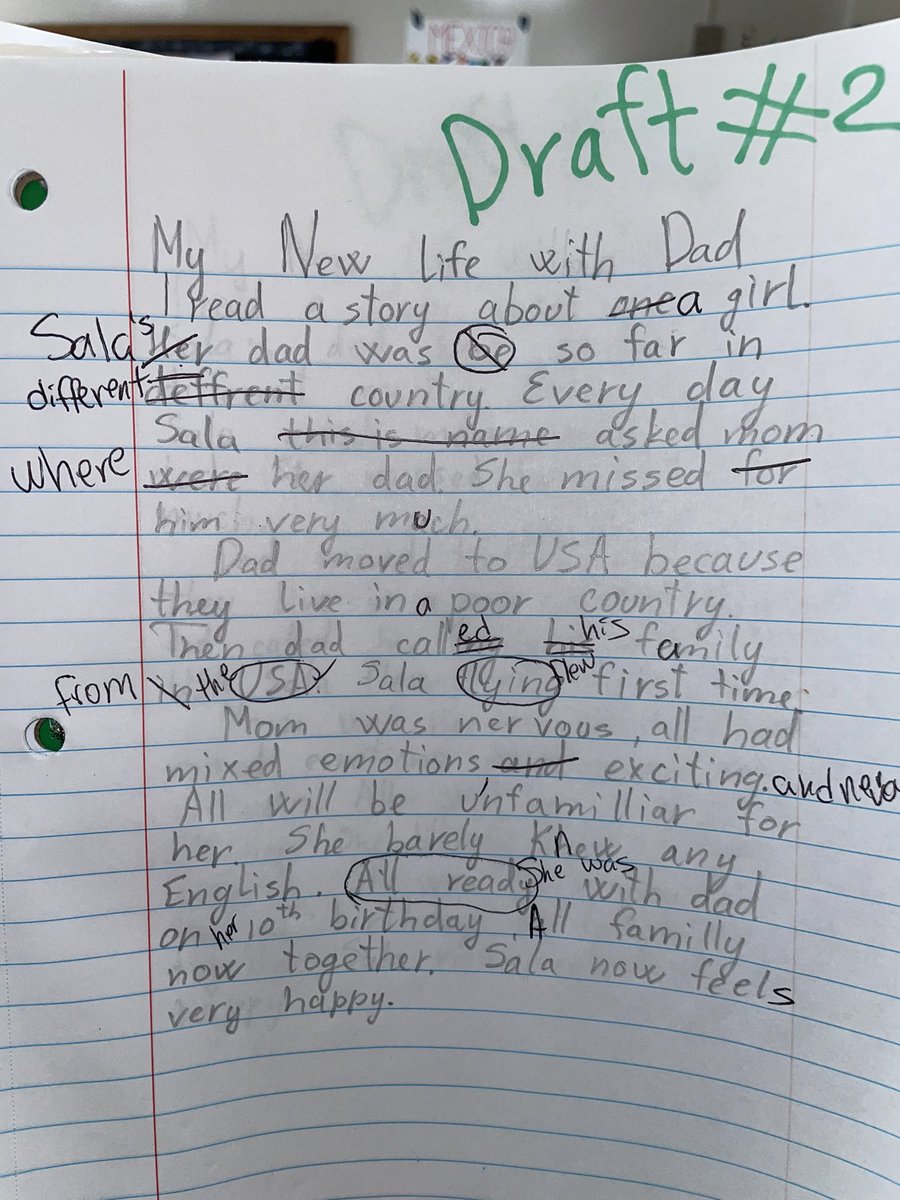 MEXICO
Draft #2
My New life with Dad
I read a story about one a girl.
Sala's Her dad was be so far in
different deffrent country. Every day
Sala this is name asked mom
where were her dad. She missed for
him very much.
Dad moved to USA because
they live in a poor country.
Then dad called his family
from in the USA. Sala flying flew first time.
Mom was nervous, all had
mixed emotions and exciting. and
All will be unfamilliar for
her. She barely knew any
English. All ready She was with dad
on her 10th birthday. All familly
now together. Sala now feels
very happy.